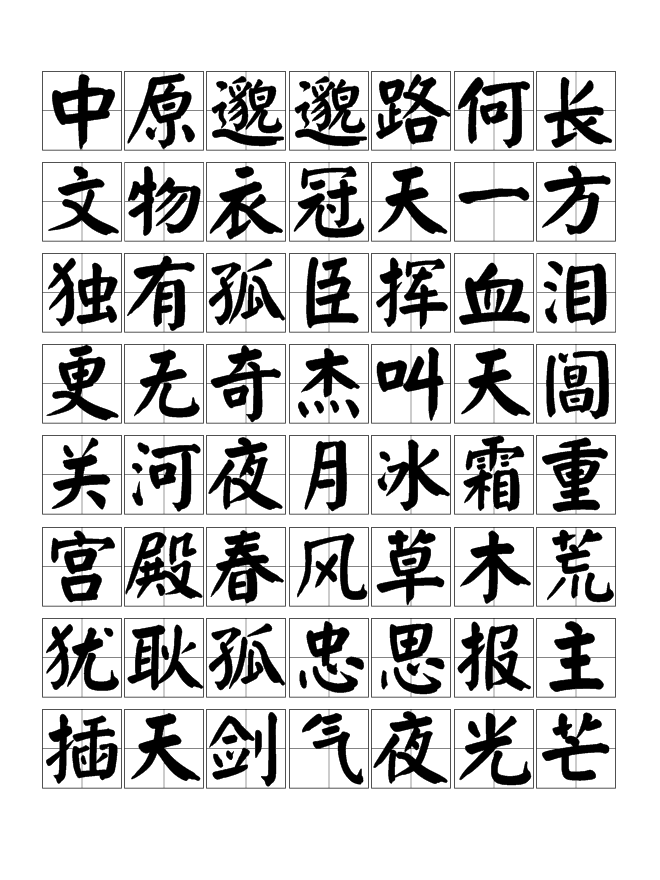 中原邈邈路何长
文物衣冠天一方
独有孤臣挥血泪
更无奇杰叫天阊
关河夜月冰霜重
宫殿春风草木荒
犹耿孤忠思报主
插天剑气夜光芒